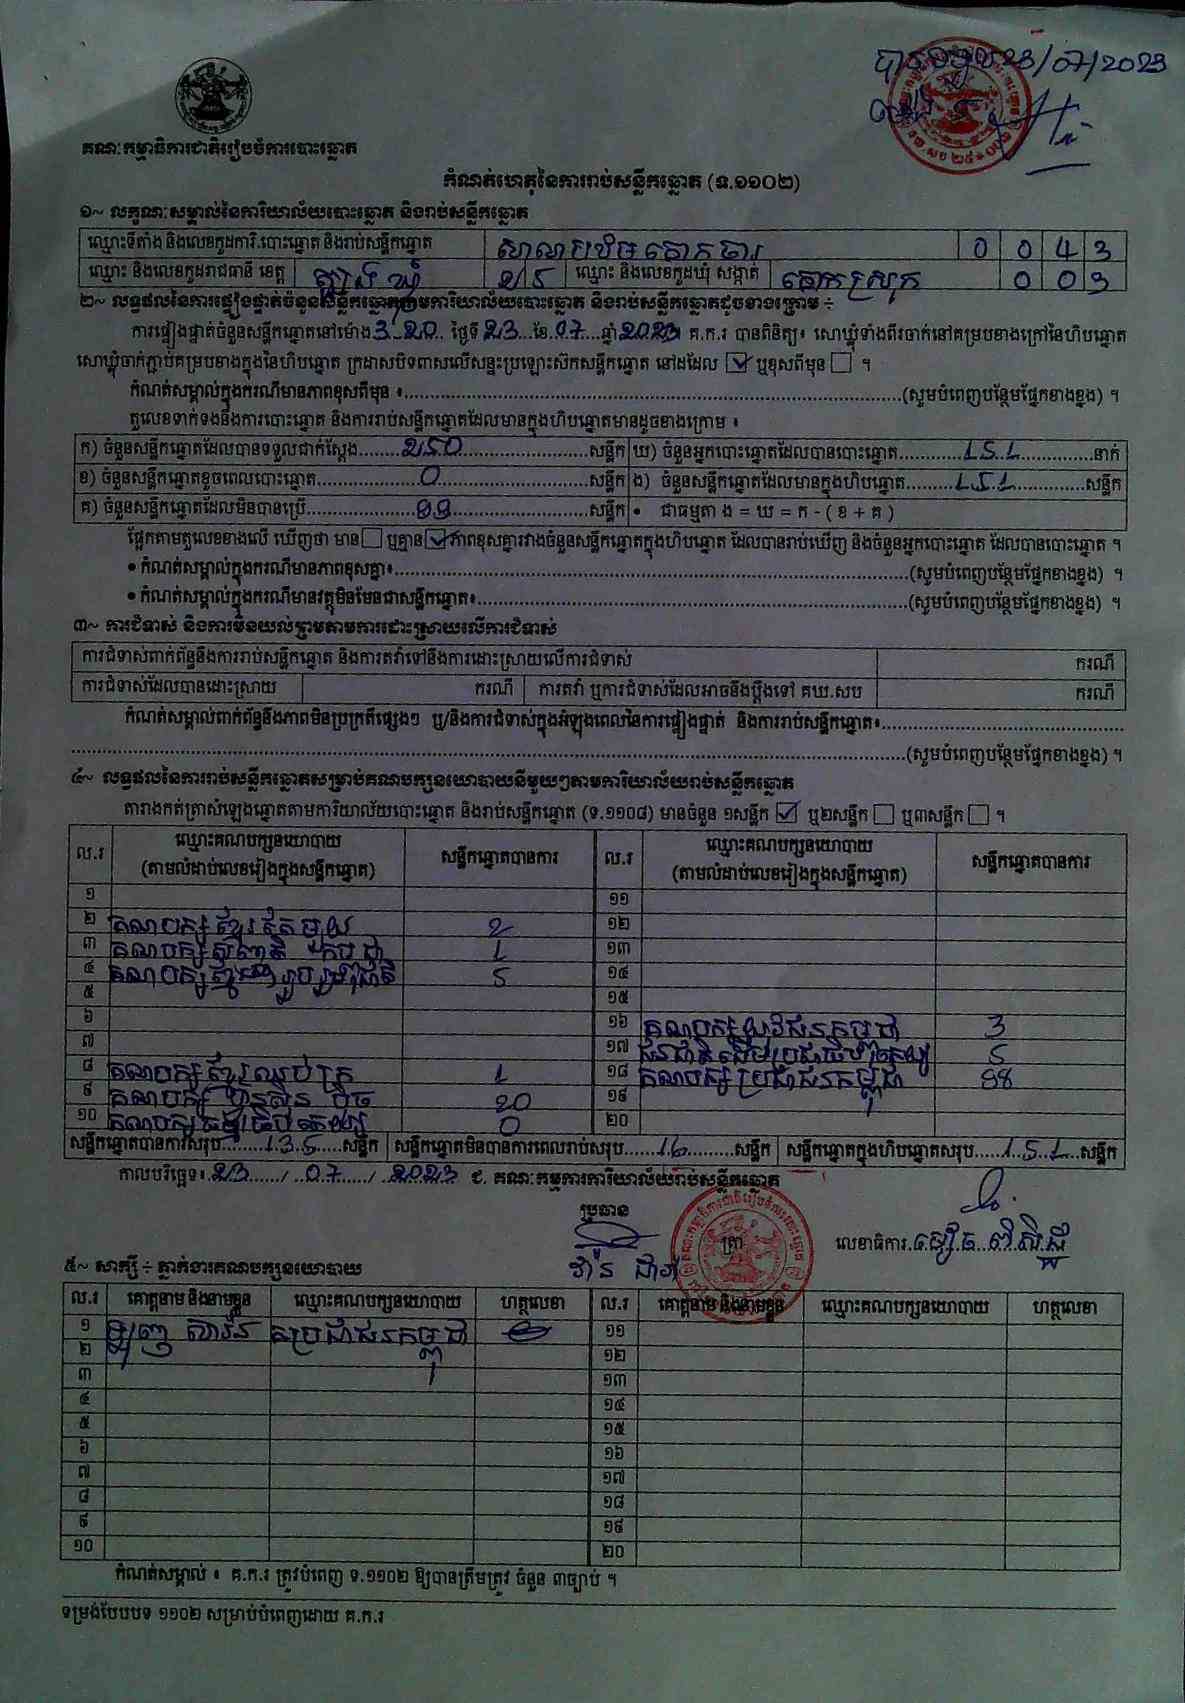 23/07/2023
គណៈកម្មាធិការជាតិរៀបចំការបោះឆ្នោត
កំណត់ហេតុនៃការរាប់សន្លឹកឆ្នោត (ទ.១១០២)
១~ លក្ខណៈសម្គាល់នៃការិយាល័យបោះឆ្នោត និងរាប់សន្លឹកឆ្នោត
ឈ្មោះទីតាំង និងលេខកូដការិ.បោះឆ្នោត និងរាប់សន្លឹកឆ្នោត សាលាបឋម គោកចារ 0 0 4 3
ឈ្មោះ និងលេខកូដរាជធានី ខេត្ត ត្បូងឃ្មុំ 25 ឈ្មោះ និងលេខកូដឃុំ សង្កាត់ គោកស្រុក 0 0 3
២~ លទ្ធផលនៃការផ្ទៀងផ្ទាត់ចំនួនសន្លឹកឆ្នោតក្រោមការិយាល័យបោះឆ្នោត និងរាប់សន្លឹកឆ្នោតដូចខាងក្រោម ÷
ការផ្ទៀងផ្ទាត់ចំនួនសន្លឹកឆ្នោតនៅម៉ោង 3.20 ថ្ងៃទី 23 ខែ 07 ឆ្នាំ 2023 គ.ក.រ បានពិនិត្យ៖ សោឃ្លុំទាំងពីរចាក់នៅគម្របខាងក្រៅនៃហិបឆ្នោត
សោឃ្លុំចាក់ភ្ជាប់គម្របខាងក្នុងនៃហិបឆ្នោត ក្រដាសបិទពាសលើសន្ទះប្រឡោះស៊កសន្លឹកឆ្នោត នៅដដែល ☑ ឬខុសពីមុន ☐ ។
កំណត់សម្គាល់ក្នុងករណីមានភាពខុសពីមុន ៖..........(សូមបំពេញបន្ថែមផ្នែកខាងខ្នង) ។
តួលេខទាក់ទងនឹងការបោះឆ្នោត និងការរាប់សន្លឹកឆ្នោតដែលមានក្នុងហិបឆ្នោតមានដូចខាងក្រោម ៖
ក) ចំនួនសន្លឹកឆ្នោតដែលបានទទួលជាក់ស្តែង 250 សន្លឹក ឃ) ចំនួនអ្នកបោះឆ្នោតដែលបានបោះឆ្នោត 151 នាក់
ខ) ចំនួនសន្លឹកឆ្នោតខូចពេលបោះឆ្នោត 0 សន្លឹក ង) ចំនួនសន្លឹកឆ្នោតដែលមានក្នុងហិបឆ្នោត 151 សន្លឹក
គ) ចំនួនសន្លឹកឆ្នោតដែលមិនបានប្រើ 99 សន្លឹក • ជាធម្មតា ង = ឃ = ក - ( ខ + គ )
ផ្អែកតាមតួលេខខាងលើ ឃើញថា មាន ☐ ឬគ្មាន ☑ ភាពខុសគ្នារវាងចំនួនសន្លឹកឆ្នោតក្នុងហិបឆ្នោត ដែលបានរាប់ឃើញ និងចំនួនអ្នកបោះឆ្នោត ដែលបានបោះឆ្នោត ។
• កំណត់សម្គាល់ក្នុងករណីមានភាពខុសគ្នា៖..........(សូមបំពេញបន្ថែមផ្នែកខាងខ្នង) ។
• កំណត់សម្គាល់ក្នុងករណីមានវត្ថុមិនមែនជាសន្លឹកឆ្នោត៖..........(សូមបំពេញបន្ថែមផ្នែកខាងខ្នង) ។
៣~ ការជំទាស់ និងការមិនយល់ព្រមតាមការដោះស្រាយលើការជំទាស់
ការជំទាស់ពាក់ព័ន្ធនឹងការរាប់សន្លឹកឆ្នោត និងការតវ៉ាទៅនឹងការដោះស្រាយលើការជំទាស់ ករណី
ការជំទាស់ដែលបានដោះស្រាយ ករណី ការតវ៉ា ឬការជំទាស់ដែលអាចនឹងប្តឹងទៅ គឃ.សប ករណី
កំណត់សម្គាល់ពាក់ព័ន្ធនឹងភាពមិនប្រក្រតីផ្សេងៗ ឬ/និងការជំទាស់ក្នុងអំឡុងពេលនៃការផ្ទៀងផ្ទាត់ និងការរាប់សន្លឹកឆ្នោត៖..........
..........(សូមបំពេញបន្ថែមផ្នែកខាងខ្នង) ។
៤~ លទ្ធផលនៃការរាប់សន្លឹកឆ្នោតសម្រាប់គណបក្សនយោបាយនីមួយៗតាមការិយាល័យរាប់សន្លឹកឆ្នោត
តារាងកត់ត្រាសំឡេងឆ្នោតតាមការិយាល័យបោះឆ្នោត និងរាប់សន្លឹកឆ្នោត (ទ.១១០៨) មានចំនួន ១សន្លឹក ☑ ឬ២សន្លឹក ☐ ឬ៣សន្លឹក ☐ ។
ល.រ ឈ្មោះគណបក្សនយោបាយ (តាមលំដាប់លេខរៀងក្នុងសន្លឹកឆ្នោត) សន្លឹកឆ្នោតបានការ ល.រ ឈ្មោះគណបក្សនយោបាយ (តាមលំដាប់លេខរៀងក្នុងសន្លឹកឆ្នោត) សន្លឹកឆ្នោតបានការ
១ ១១
២ គណបក្សខ្មែរតែមួយ 2 ១២
៣ គណបក្ស 1 ១៣
៤ គណបក្សខ្មែររួបរួមជាតិ 5 ១៤
៥ ១៥
៦ ១៦ គណបក្សយុវជនកម្ពុជា 3
៧ ១៧ ជនជាតិដើមប្រជាធិបតេយ្យ 5
៨ គណបក្សខ្មែរឈប់ក្រ 1 ១៨ គណបក្សប្រជាជនកម្ពុជា 98
៩ គណបក្សហ៊្វុនស៊ិនប៉ិច 20 ១៩
១០ គណបក្សធម្មាធិបតេយ្យ 0 ២០
សន្លឹកឆ្នោតបានការសរុប 135 សន្លឹក សន្លឹកឆ្នោតមិនបានការពេលរាប់សរុប 16 សន្លឹក សន្លឹកឆ្នោតក្នុងហិបឆ្នោតសរុប 151 សន្លឹក
កាលបរិច្ឆេទ៖ 23 / 07 / 2023 ជ. គណៈកម្មការការិយាល័យរាប់សន្លឹកឆ្នោត
ប្រធាន
ត្រា លេខាធិការ
៥~ សាក្សី ÷ ភ្នាក់ងារគណបក្សនយោបាយ
ល.រ គោត្តនាម និងនាមខ្លួន ឈ្មោះគណបក្សនយោបាយ ហត្ថលេខា ល.រ គោត្តនាម និងនាមខ្លួន ឈ្មោះគណបក្សនយោបាយ ហត្ថលេខា
១ ប្រជាជនកម្ពុជា ១១
២ ១២
៣ ១៣
៤ ១៤
៥ ១៥
៦ ១៦
៧ ១៧
៨ ១៨
៩ ១៩
១០ ២០
កំណត់សម្គាល់ ៖ គ.ក.រ ត្រូវបំពេញ ទ.១១០២ ឱ្យបានត្រឹមត្រូវ ចំនួន ៣ច្បាប់ ។
ទម្រង់បែបបទ ១១០២ សម្រាប់បំពេញដោយ គ.ក.រ